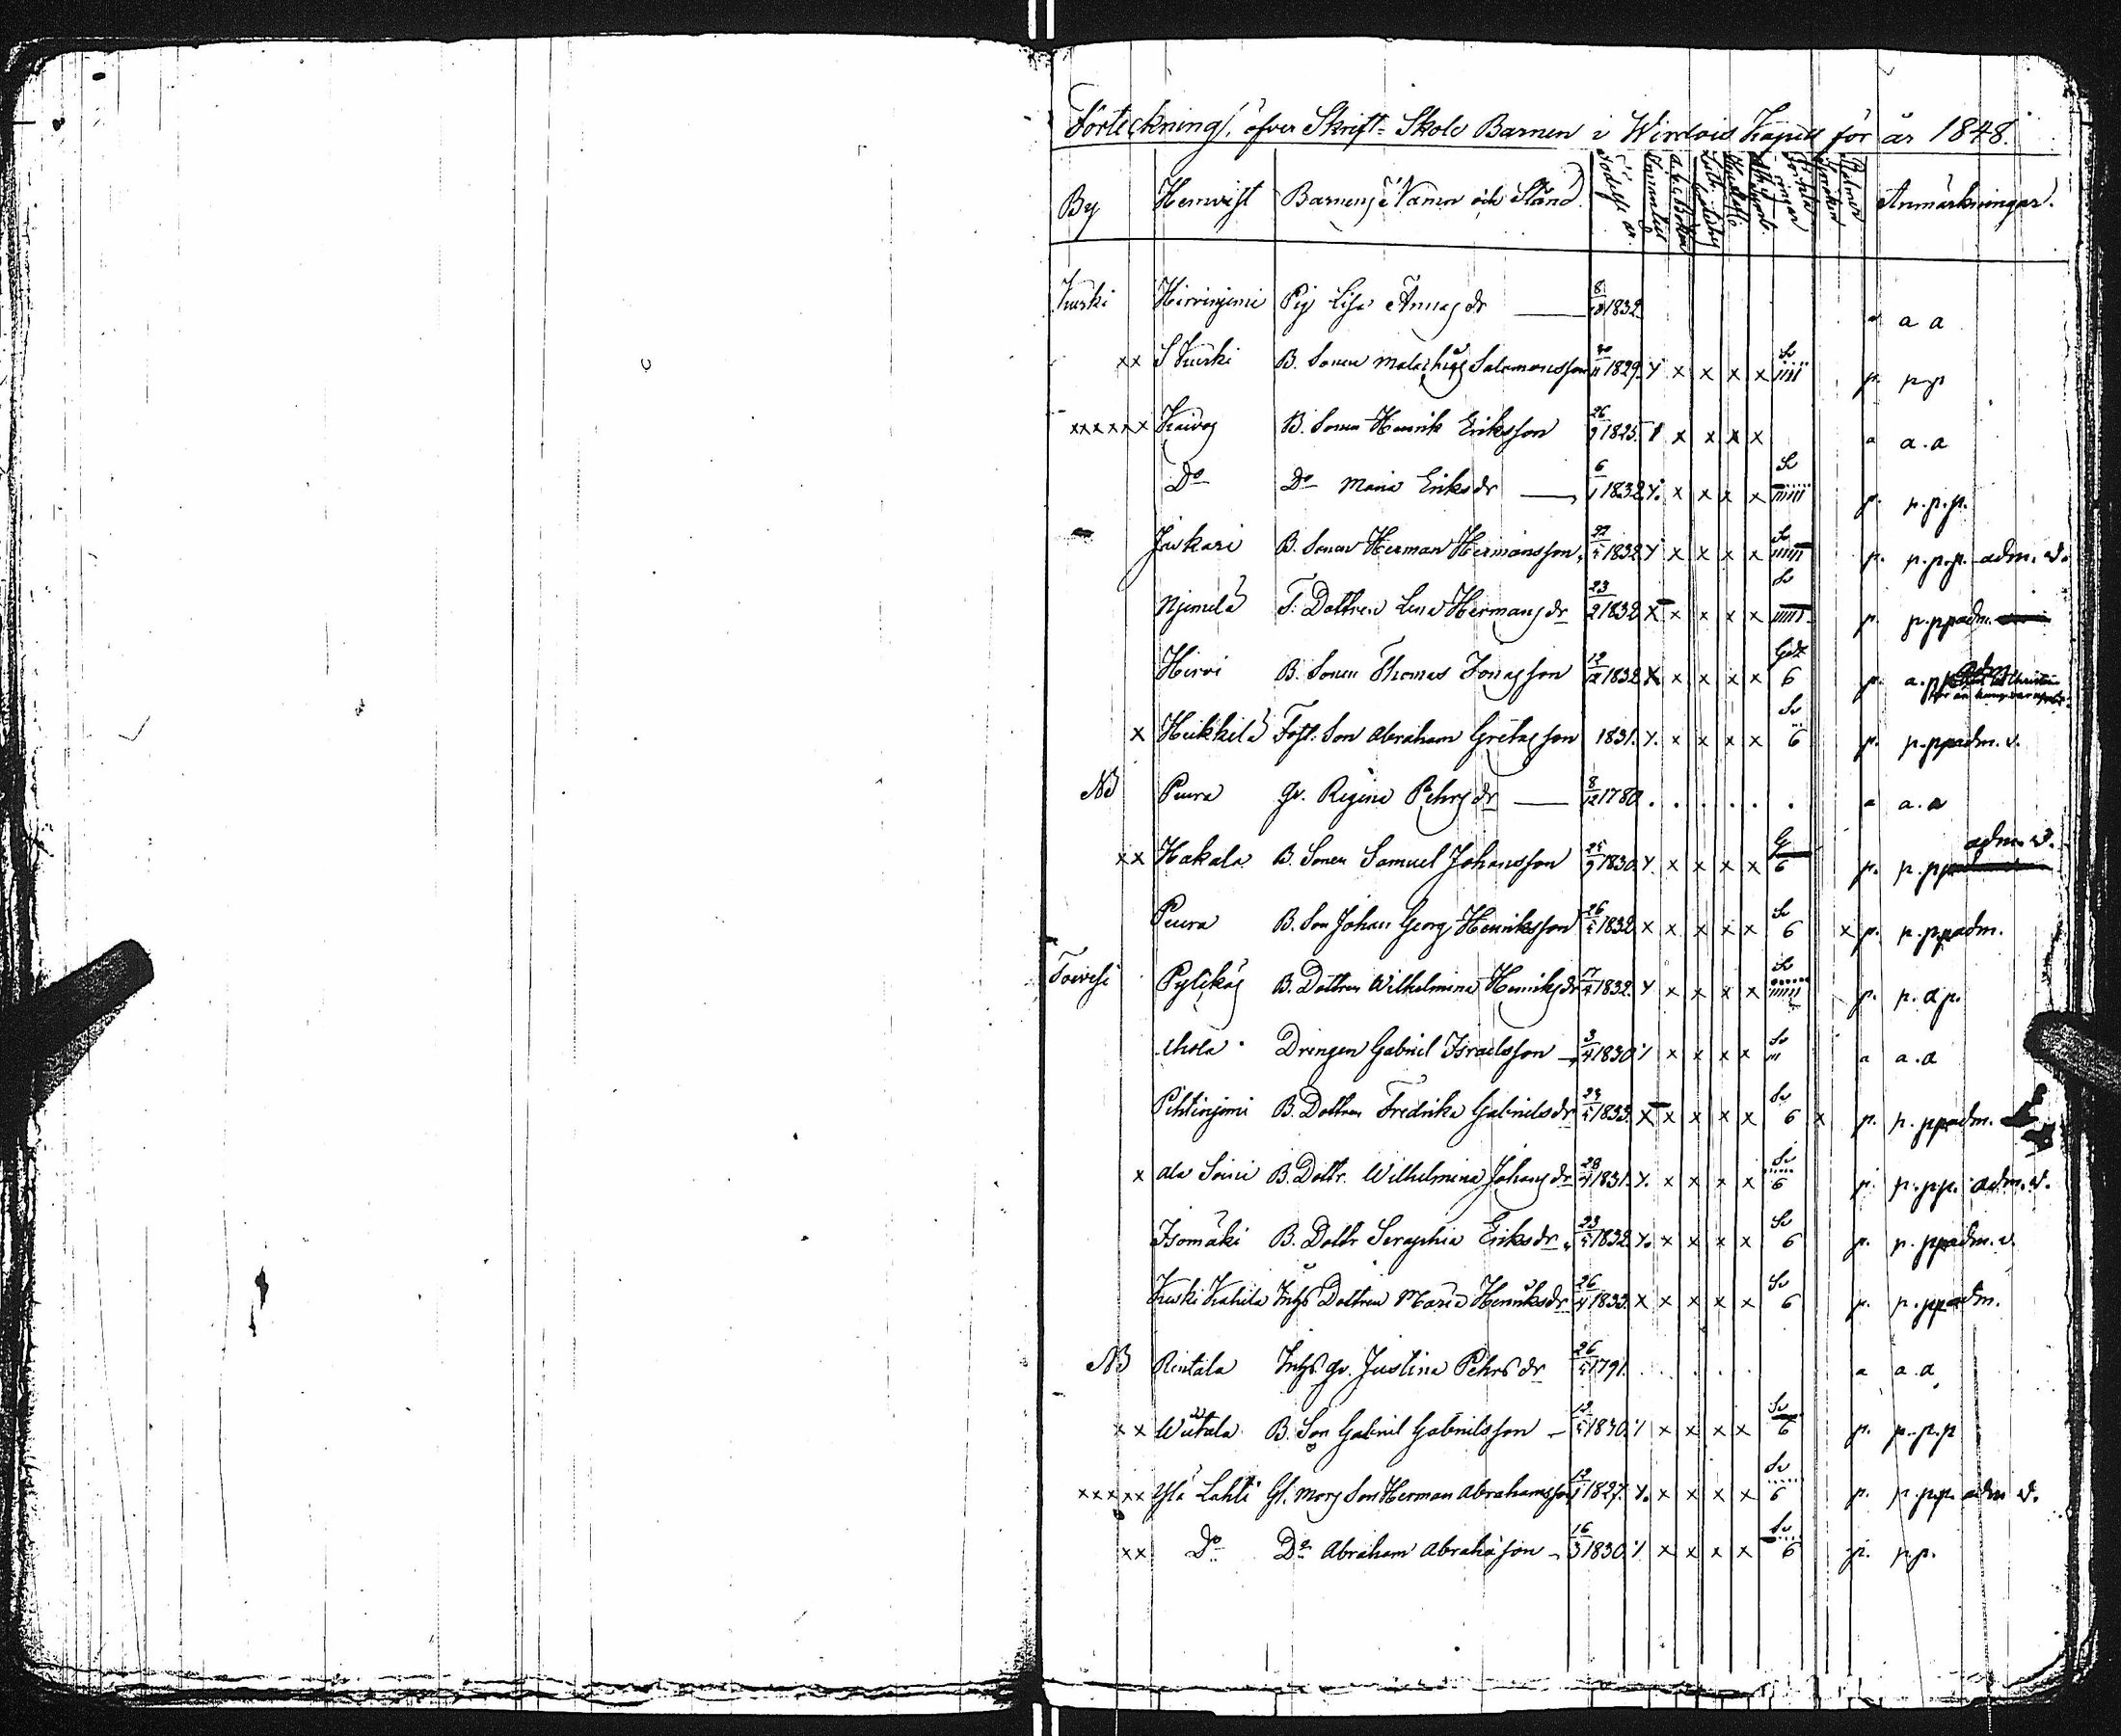 Förteckning öfver Skrift-Skole Barnen i Wirdois Kapell för år 1848.
By Hemvist Barnens Namn och Stånd Födelse år. Innanläs. a.b.c. Boken Luth. Cateches Hustafl. Anmärkningar.
Kurski Hirvinjemi Pig Lisa Annas dr 1832 a a a
xx S Kurski B. Sonen Malachias Salomonsson 1829. x x x x Sv p. p p
xxxxxx Kaivos B. Sonen Henrik Eriksson 26/9 1825. x x x x a a.a
Do Do Maria Eriks dr 6/1 1832 x x x x Sv p. p.p.p.
Jaskari B. Sonen Herman Hermansson 1832 x x x x Sv p. p.p.p. adm. v.
Njemelä T. Dottren Lena Hermans dr 23/2 1832 x x x x x Sv p. p.ppadm.
Hirvi B. Sonen Thomas Jonasson 12/12 1832 x x x x x God 6 p. a.p adm
x Heikkilä Fost. Son Abraham Gretasson 1831. x x x x Sv 6 p. p.ppadm. v.
NB Peura Gr. Regina Pehrs dr 8/12 1780 . . . . . . a a.a
xx Hakala B. Sonen Samuel Johansson 25/9 1830. x x x x G 6 p. p.pp adm. v.
Peura B. Son Johan Georg Henriksson 26/5 1832 x x x x x Sv 6 x p. p.ppadm.
Toivesi Pylikäs B. Dottren Wilhelmina Henriks dr 17/4 1832. x x x x Sv p. p.a p.
Ahola Drengen Gabriel Israelsson 3/4 1830 x x x x Sv a a.a
Pihtinjemi B. Dottren Fredrika Gabriels dr 24/5 1833. x x x x x Sv 6 x p. p.ppadm.
x Ala Soini B. Dottr. Wilhelmina Johans dr 28/4 1831. x x x x Sv 6 p. p.pp. adm. v.
Isomäki B. Dottr Seraphia Eriks dr 23/5 1832. x x x x Sv 6 p. p.ppadm. v.
Kurki Krahila Inhs Dottren Maria Henriks dr 26/4 1833. x x x x x Sv 6 p. p.ppadm.
NB Rintala Inhs gr. Justina Pehrs dr 26/5 1791. . . . . . a a.a
xx Wiitala B. Son Gabriel Gabrielsson 12/5 1830. x x x x Sv 6 p. p.p.p
xxxxx Ylä Lahti Gl. mors Son Herman Abrahamsson 1827. x x x x Sv 6 p. p.p.p. adm v.
xx Do Do Abraham Abrahasson 16/3 1830. x x x x Sv 6 p. p.p.